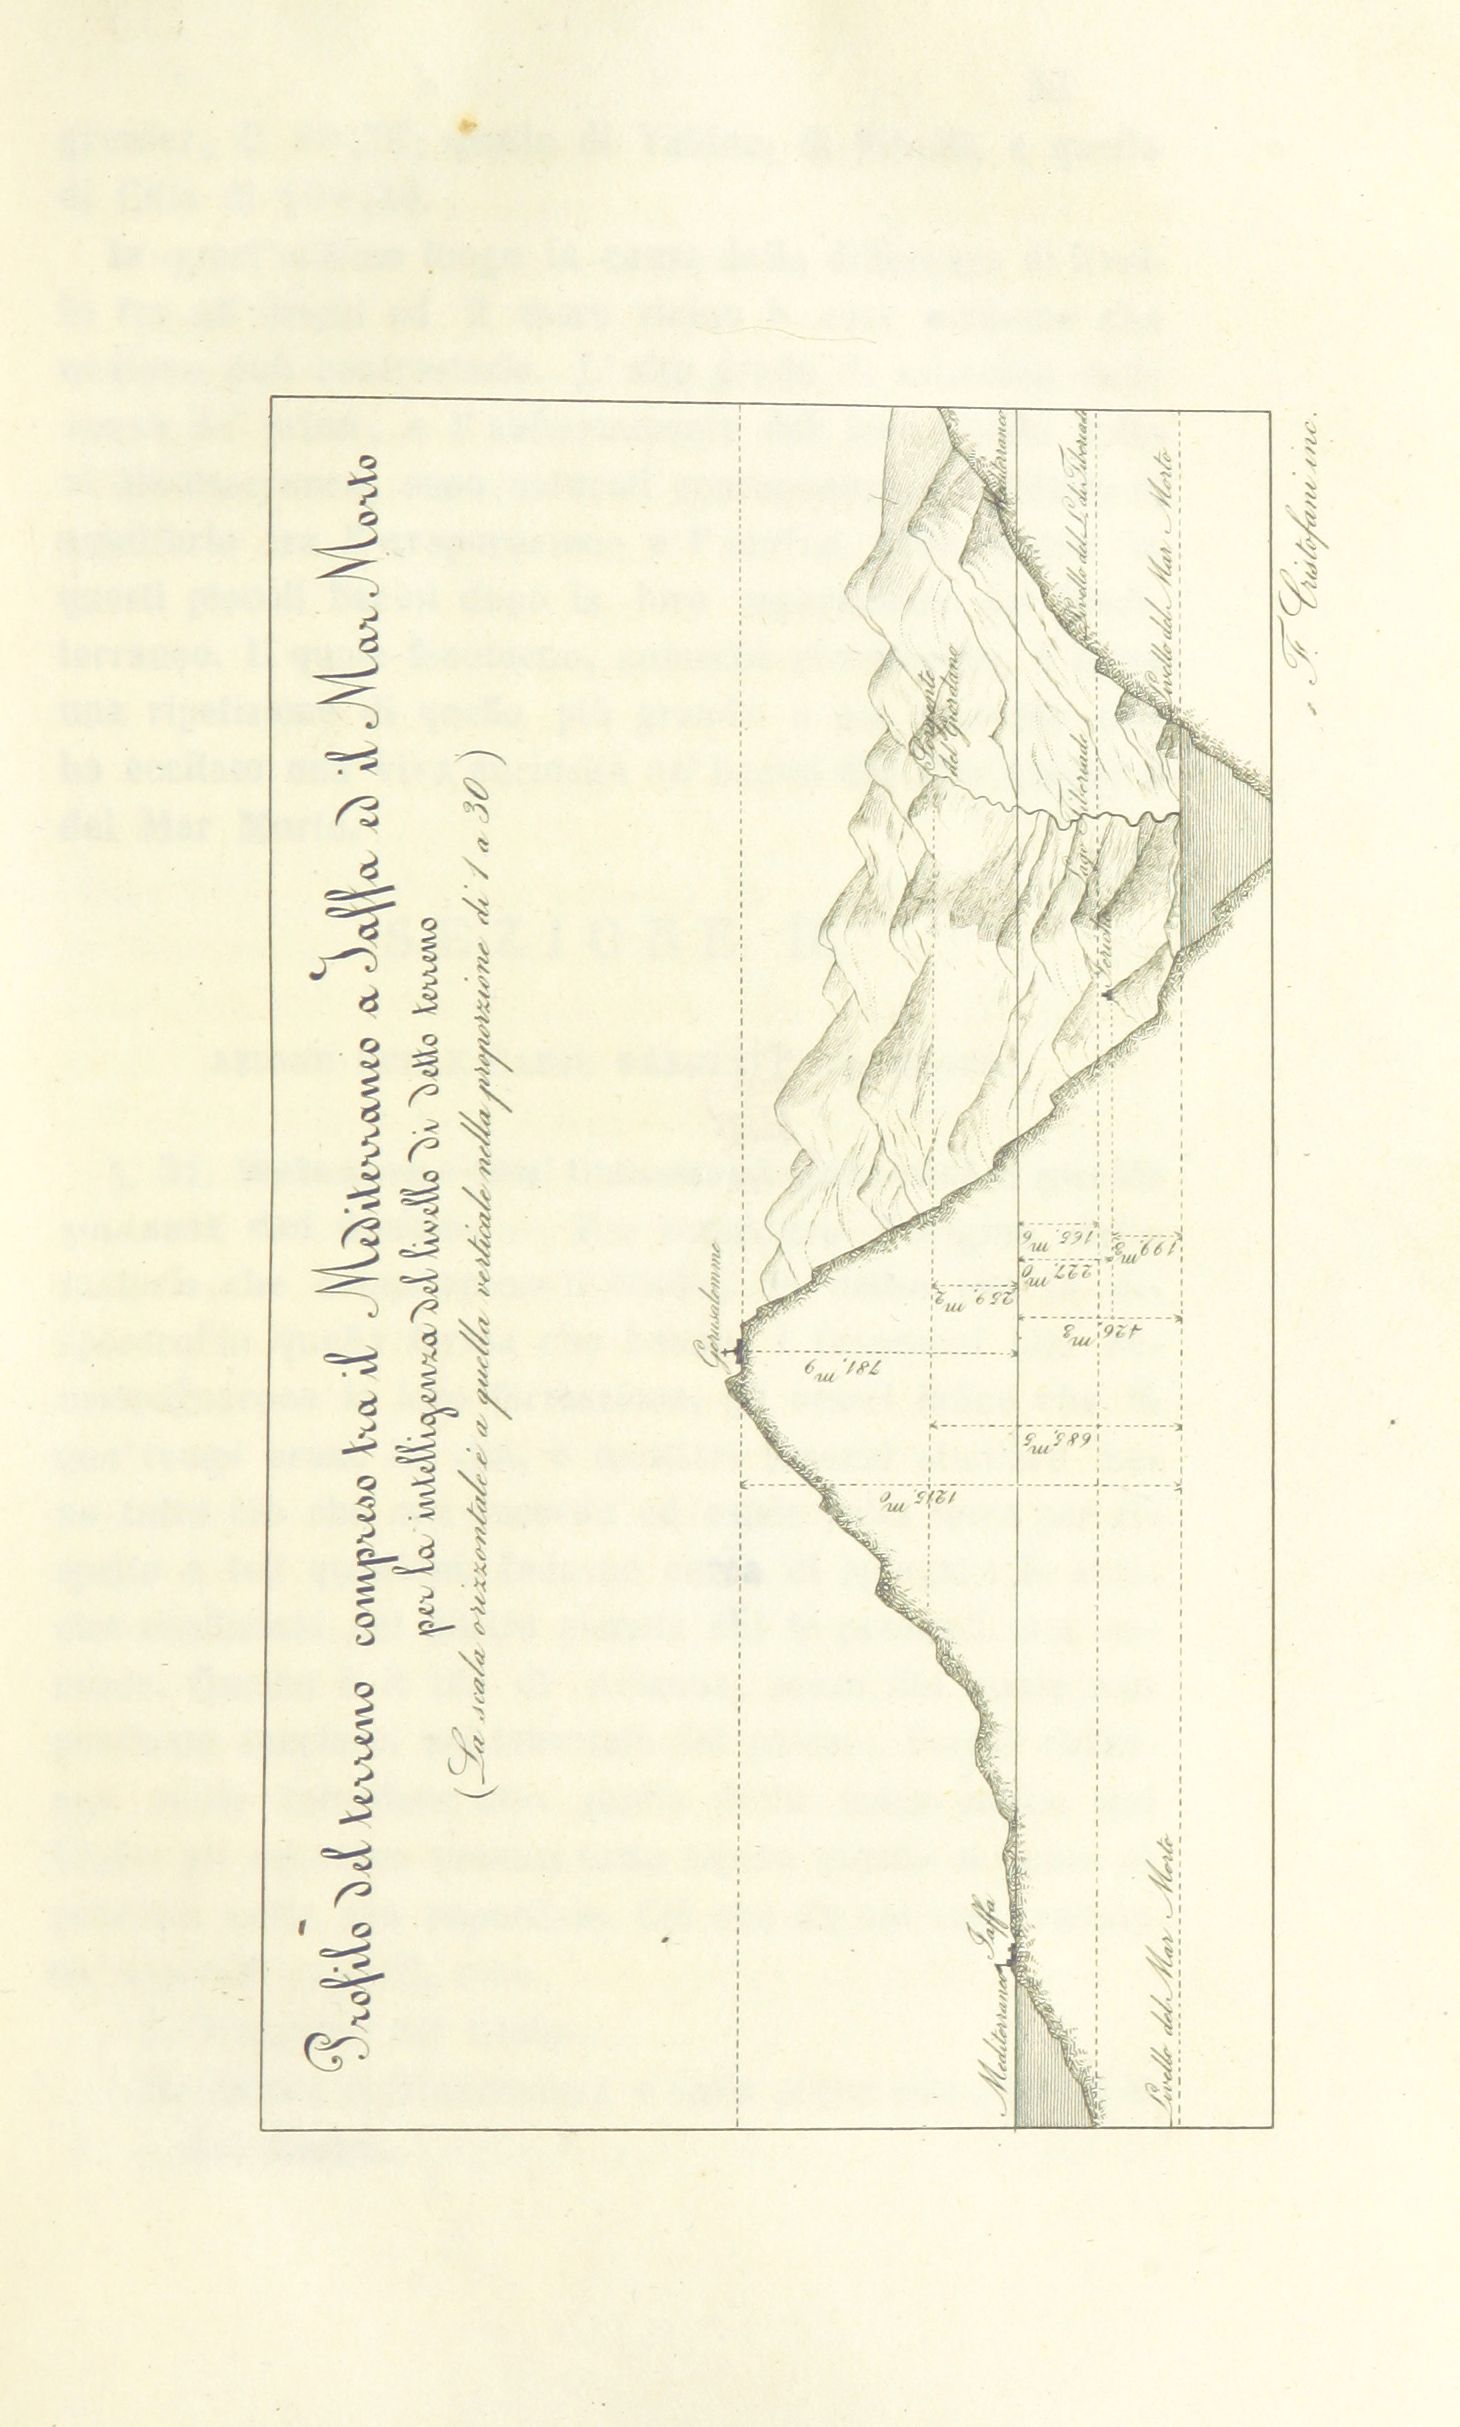 Profilo del terreno compreso tra il Mediterraneo a Jaffa ed il Mar Morto
per la intelligenza del livello di detto terreno
(La scala orizzontale è a quella verticale nella proporzione di 1 a 30)
Gerusalemme
Sorgente
del Giordano
Mediterraneo
Jaffa
Mediterraneo
Livello del L. di Tiberiade
Lago Tiberiade
Gerico
Livello del Mar Morto
Livello del Mar Morto
781,m9
259,m2
165,m6
227,m0
199,m3
426,m3
685,m5
1215,m0
F. Cristofani inc.